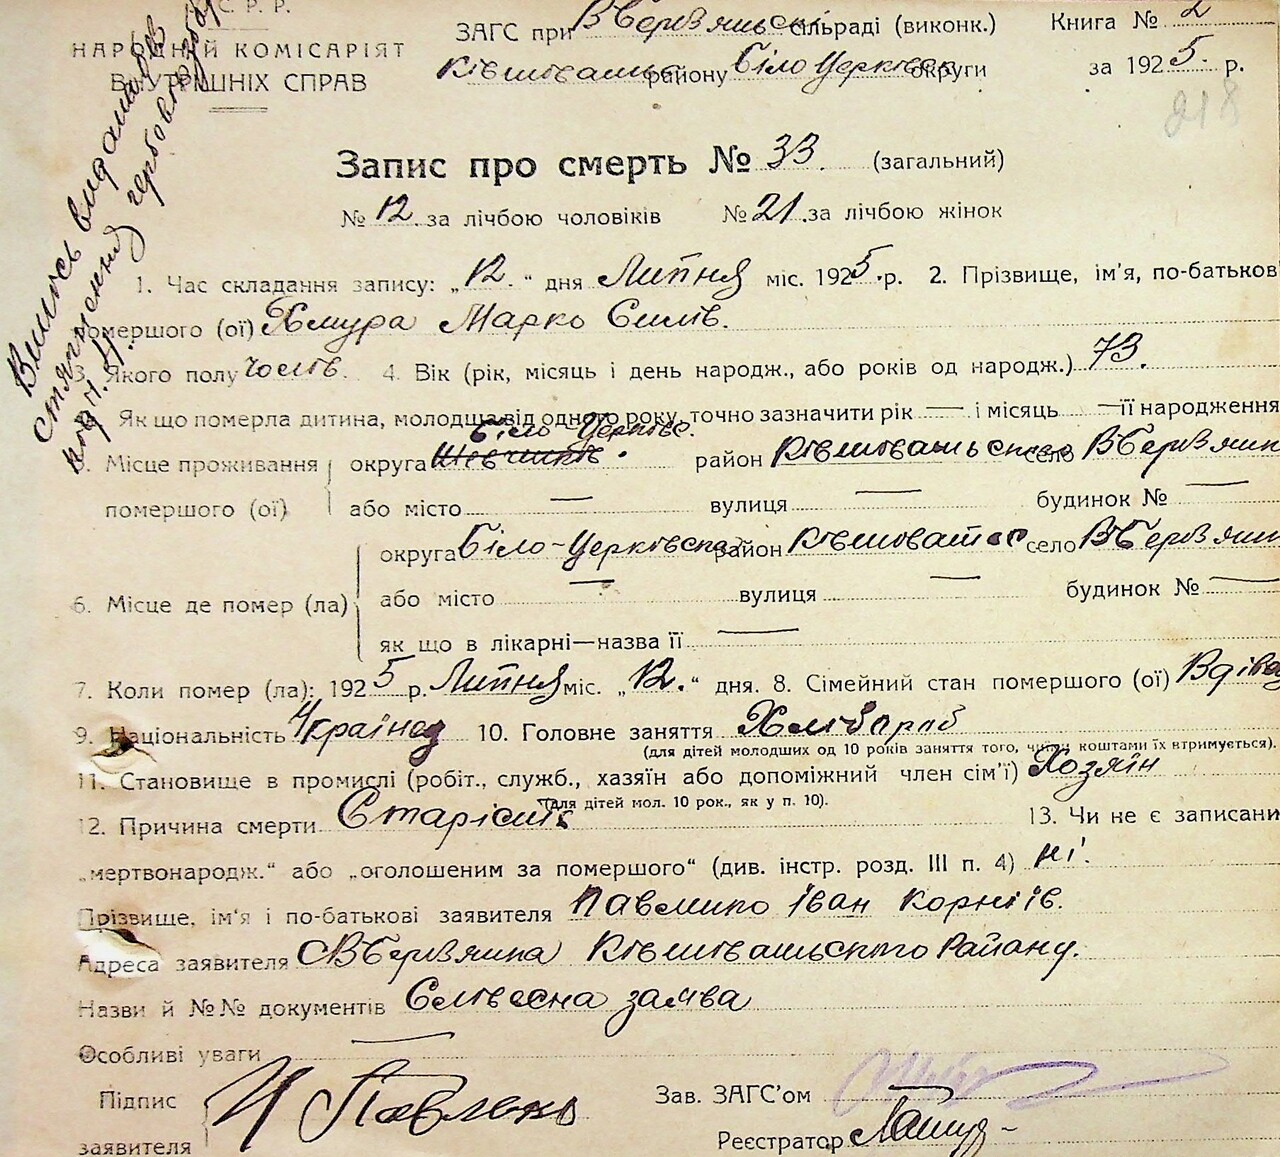 С. Р. Р.
НАРОДНІЙ КОМІСАРІЯТ
ВНУТРІШНІХ СПРАВ
ЗАГС при В Березянській сільраді (виконк.)
Книга № 2
району Біло Церківск округи
за 1925. р.
218
Запис про смерть № 33. (загальний)
№ 12. за лічбою чоловіків № 21. за лічбою жінок
1. Час складання запису: „12.“ дня Липня міс. 1925. р. 2. Прізвище, ім'я, по-батьков
помершого (ої) Хмура Марко Силів.
3. Якого полу чолів. 4. Вік (рік, місяць і день народж., або років од народж.) 73.
Як що померла дитина, молодща від одного року, точно зазначити рік — і місяць — її народження
Біло Церківс.
5. Місце проживання округа район село
помершого (ої) або місто — вулиця — будинок № —
округа Біло-Церківска район село
6. Місце де помер (ла) або місто — вулиця — будинок № —
як що в лікарні—назва її —
7. Коли помер (ла): 1925 р. Липня міс. „12.“ дня. 8. Сімейний стан помершого (ої) Вдівец
9. Національність Україна 10. Головне заняття Хлібороб
(для дітей молодших од 10 років заняття того, чиїми коштами їх втримується).
11. Становище в промислі (робіт., служб., хазяїн або допоміжний член сім'ї) Хозяїн
(для дітей мол. 10 рок., як у п. 10).
12. Причина смерти Старість 13. Чи не є записани
„мертвонародж.“ або „оголошеним за помершого“ (див. інстр. розд. III п. 4) ні.
Прізвище, ім'я і по-батькові заявителя Павлико Іван Корніїв.
Адреса заявителя Району.
Назви й №№ документів Словесна заява
Особливі уваги —
Підпис Зав. ЗАГС'ом
заявителя И Павленко Реєстратор
Випись видана
стягнення гербового збору